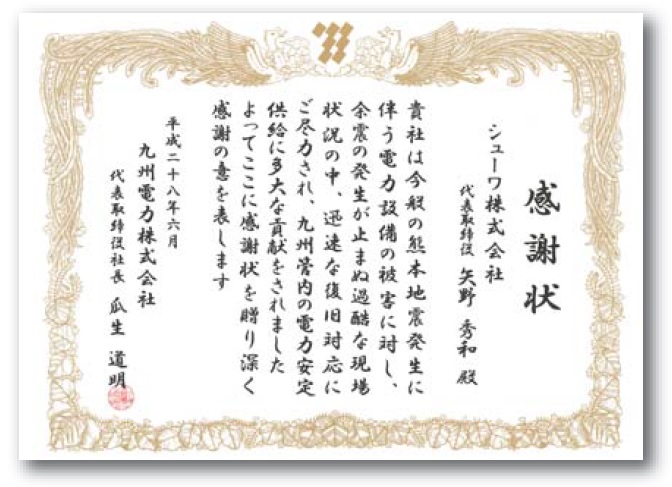 感謝状
シューワ株式会社
代表取締役 矢野 秀和 殿
貴社は今般の熊本地震発生に
伴う電力設備の被害に対し、
余震の発生が止まぬ過酷な現場
状況の中、迅速な復旧対応に
ご尽力され、九州管内の電力安定
供給に多大な貢献をされました
よってここに感謝状を贈り深く
感謝の意を表します
平成二十八年六月
九州電力株式会社
代表取締役社長 瓜生 道明